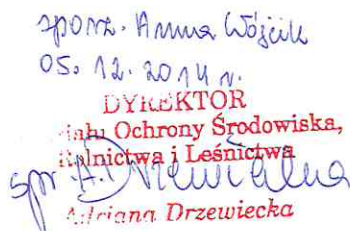 sporz. Anna Wójcik
05. 12. 2014 r.
DYREKTOR
Ochrony Środowiska,
Rolnictwa i Leśnictwa
spr. A. Drzewiecka
Adriana Drzewiecka